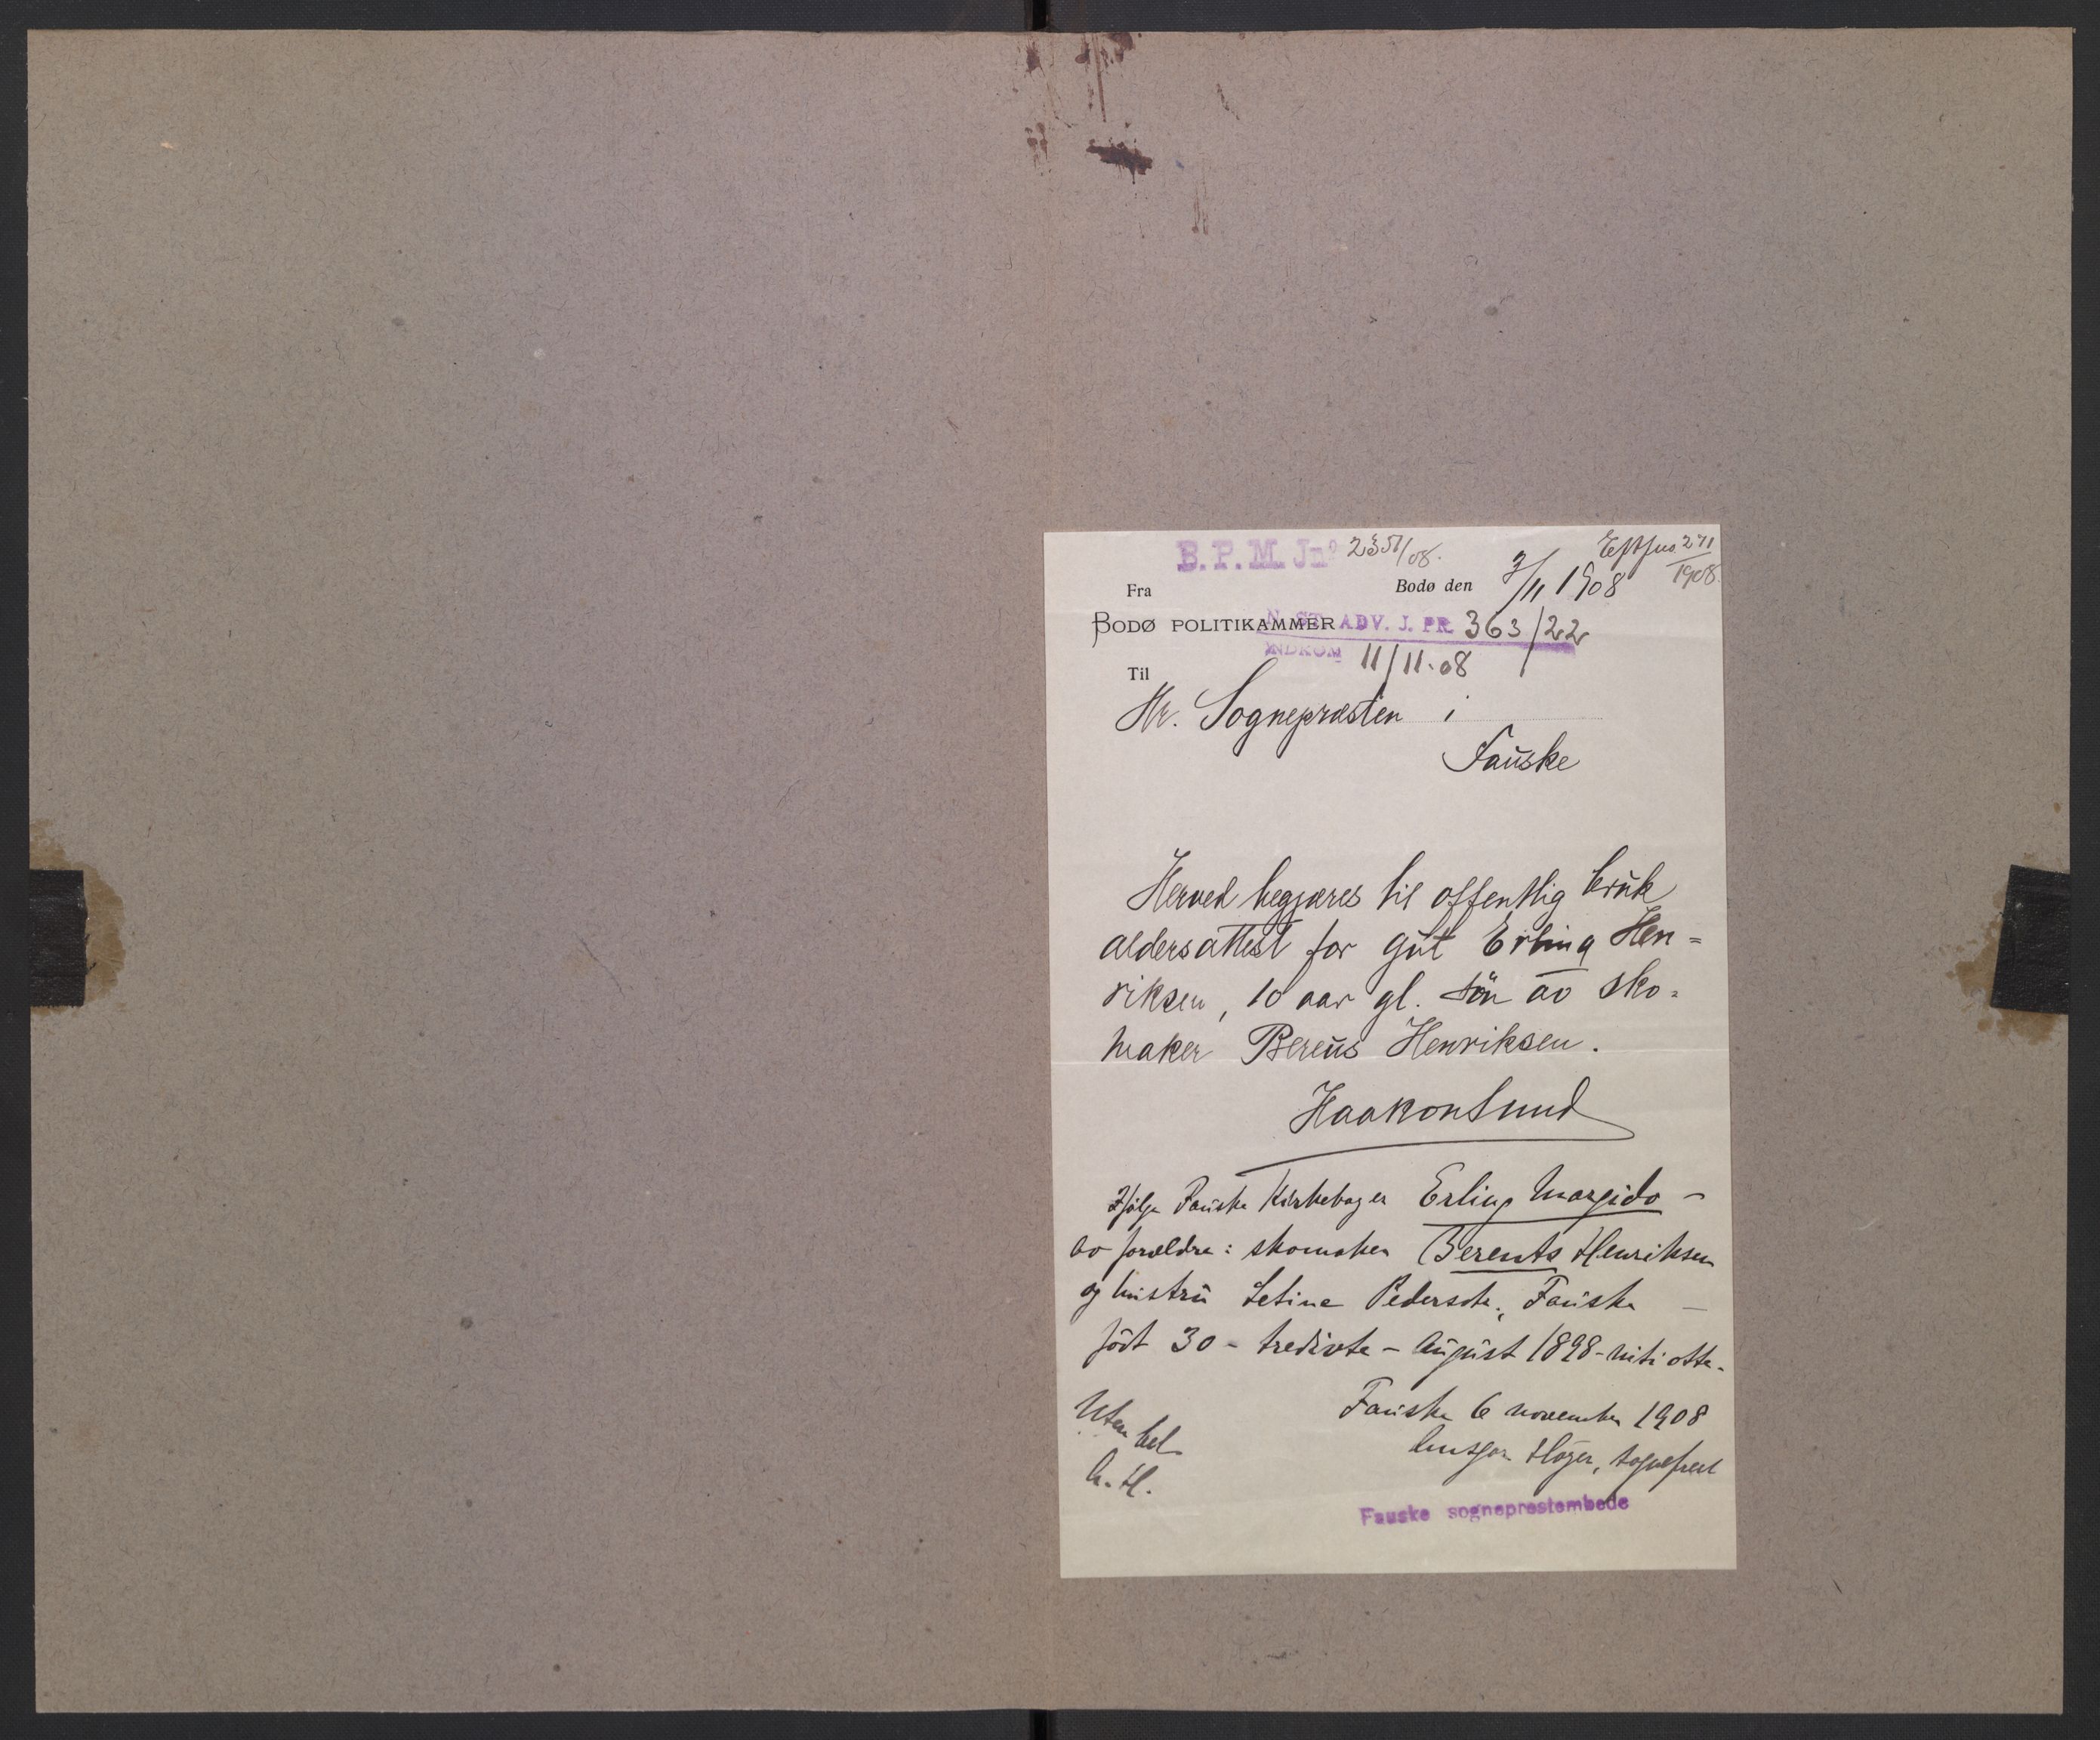 B. P. M. Jnº 2351/08.
271
1908.
Fra
Bodø den 3/11 1908
BODØ POLITIKAMMER
N. ST. ADV. J. PR. 363/22
INDKOM 11/11.08
Til
Hr. Sognepræsten i
Fauske
Herved begjæres til offentlig bruk
aldersattest for gut Erling Hen=
riksen, 10 aar gl. sön av sko=
maker Bereüs Henriksen.
Haakon Lund
Ifölge Fauske Kirkebog er Erling Margido –
av forældre: skomaker Berents Henriksen
og hustru Letine Pedersdt., Fauske –
född 30 – tredivte – August 1898 – nitiotte –
Fauske 6 november 1908
Ansgar Höyer, sogneprest
Uten bet
A. H.
Fauske sogneprestembede